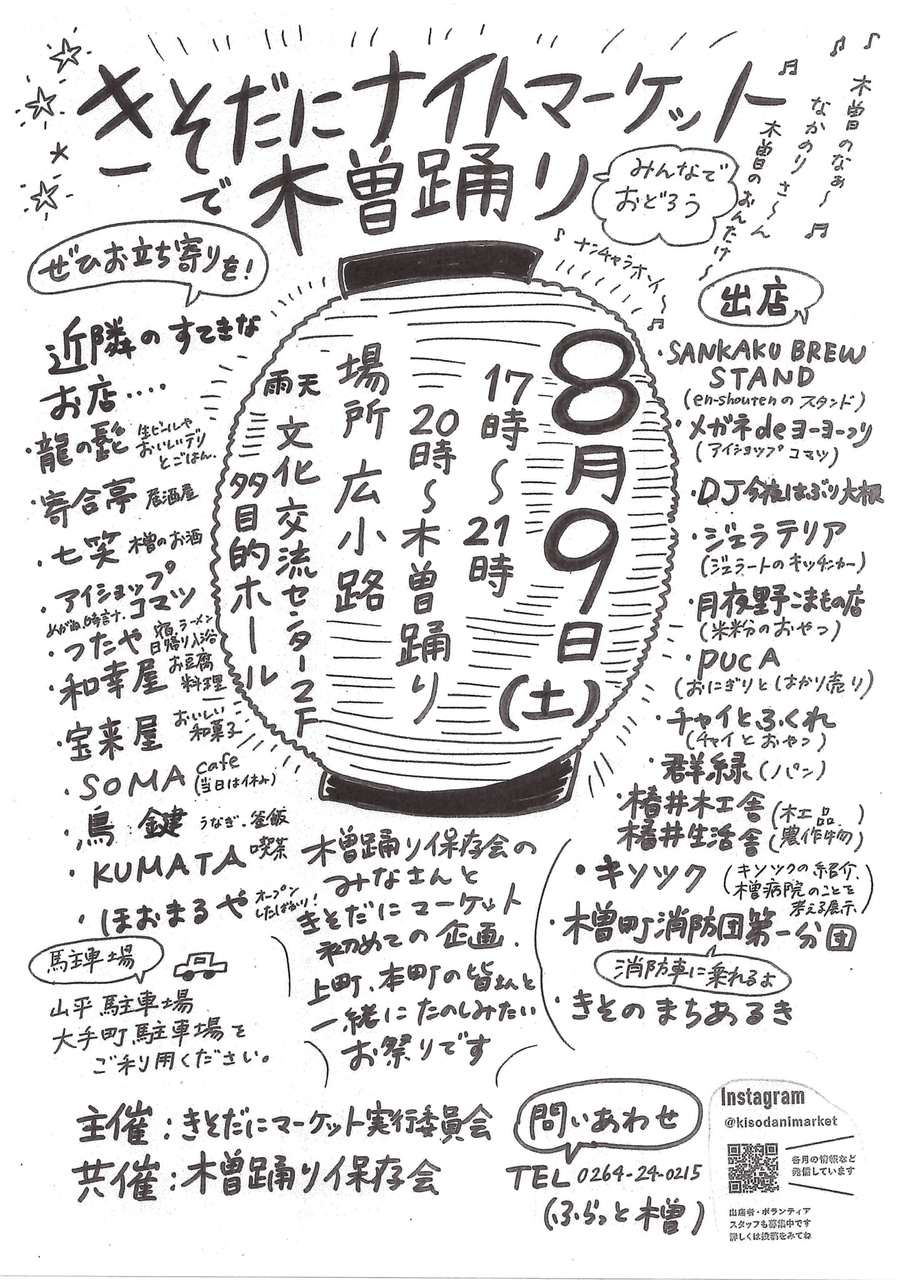 きそだにナイトマーケット
で木曽踊り
みんなで
おどろう
木曽のなぁ〜
なかのりさ〜ん
木曽のおんたけ〜
ナンチャラホイ〜
8月9日(土)
17時〜21時
20時〜木曽踊り
場所 広小路
雨天 文化交流センター2F
多目的ホール
ぜひお立ち寄りを!
近隣のすてきな
お店‥‥
・龍の髭 生ビールや
おいしいデリ
とごはん
・寄合亭 居酒屋
・七笑 木曽のお酒
・アイショップ
コマツ
めがね、時計、
・つたや 宿、ラーメン
日帰り入浴
・和幸屋 お豆腐
料理
・宝来屋 おいしい
和菓子
・SOMA cafe
(当日は休み)
・鳥鍵 うなぎ、釜飯
・KUMATA 喫茶
・ほおまるや オープン
したばかり!
駐車場
山平駐車場
大手町駐車場を
ご利用ください。
出店
・SANKAKU BREW
STAND
(en-shoutenのスタンド)
・メガネdeヨーヨーつり
(アイショップコマツ)
・DJ今夜はぶり大根
・ジェラテリア
(ジェラートのキッチンカー)
・月夜野こまもの店
(米粉のおやつ)
・PUCA
(おにぎりとはかり売り)
・チャイとふくれ
(チャイとおやつ)
・群緑(パン)
・椿井木工舎(木工品)
椿井生活舎(農作物)
・キソツク(キソツクの紹介、
木曽病院のことを
考える展示)
・木曽町消防団第一分団
消防車に乗れるよ
・きそのまちあるき
木曽踊り保存会の
みなさんと
きそだにマーケット
初めての企画、
上町、本町の皆さんと
一緒にたのしみたい
お祭りです
主催:きそだにマーケット実行委員会
共催:木曽踊り保存会
問いあわせ
TEL 0264-24-0215
(ふらっと木曽)
Instagram
@kisodanimarket
各月の情報など
発信しています
出店者・ボランティア
スタッフも募集中です
詳しくは投稿をみてね